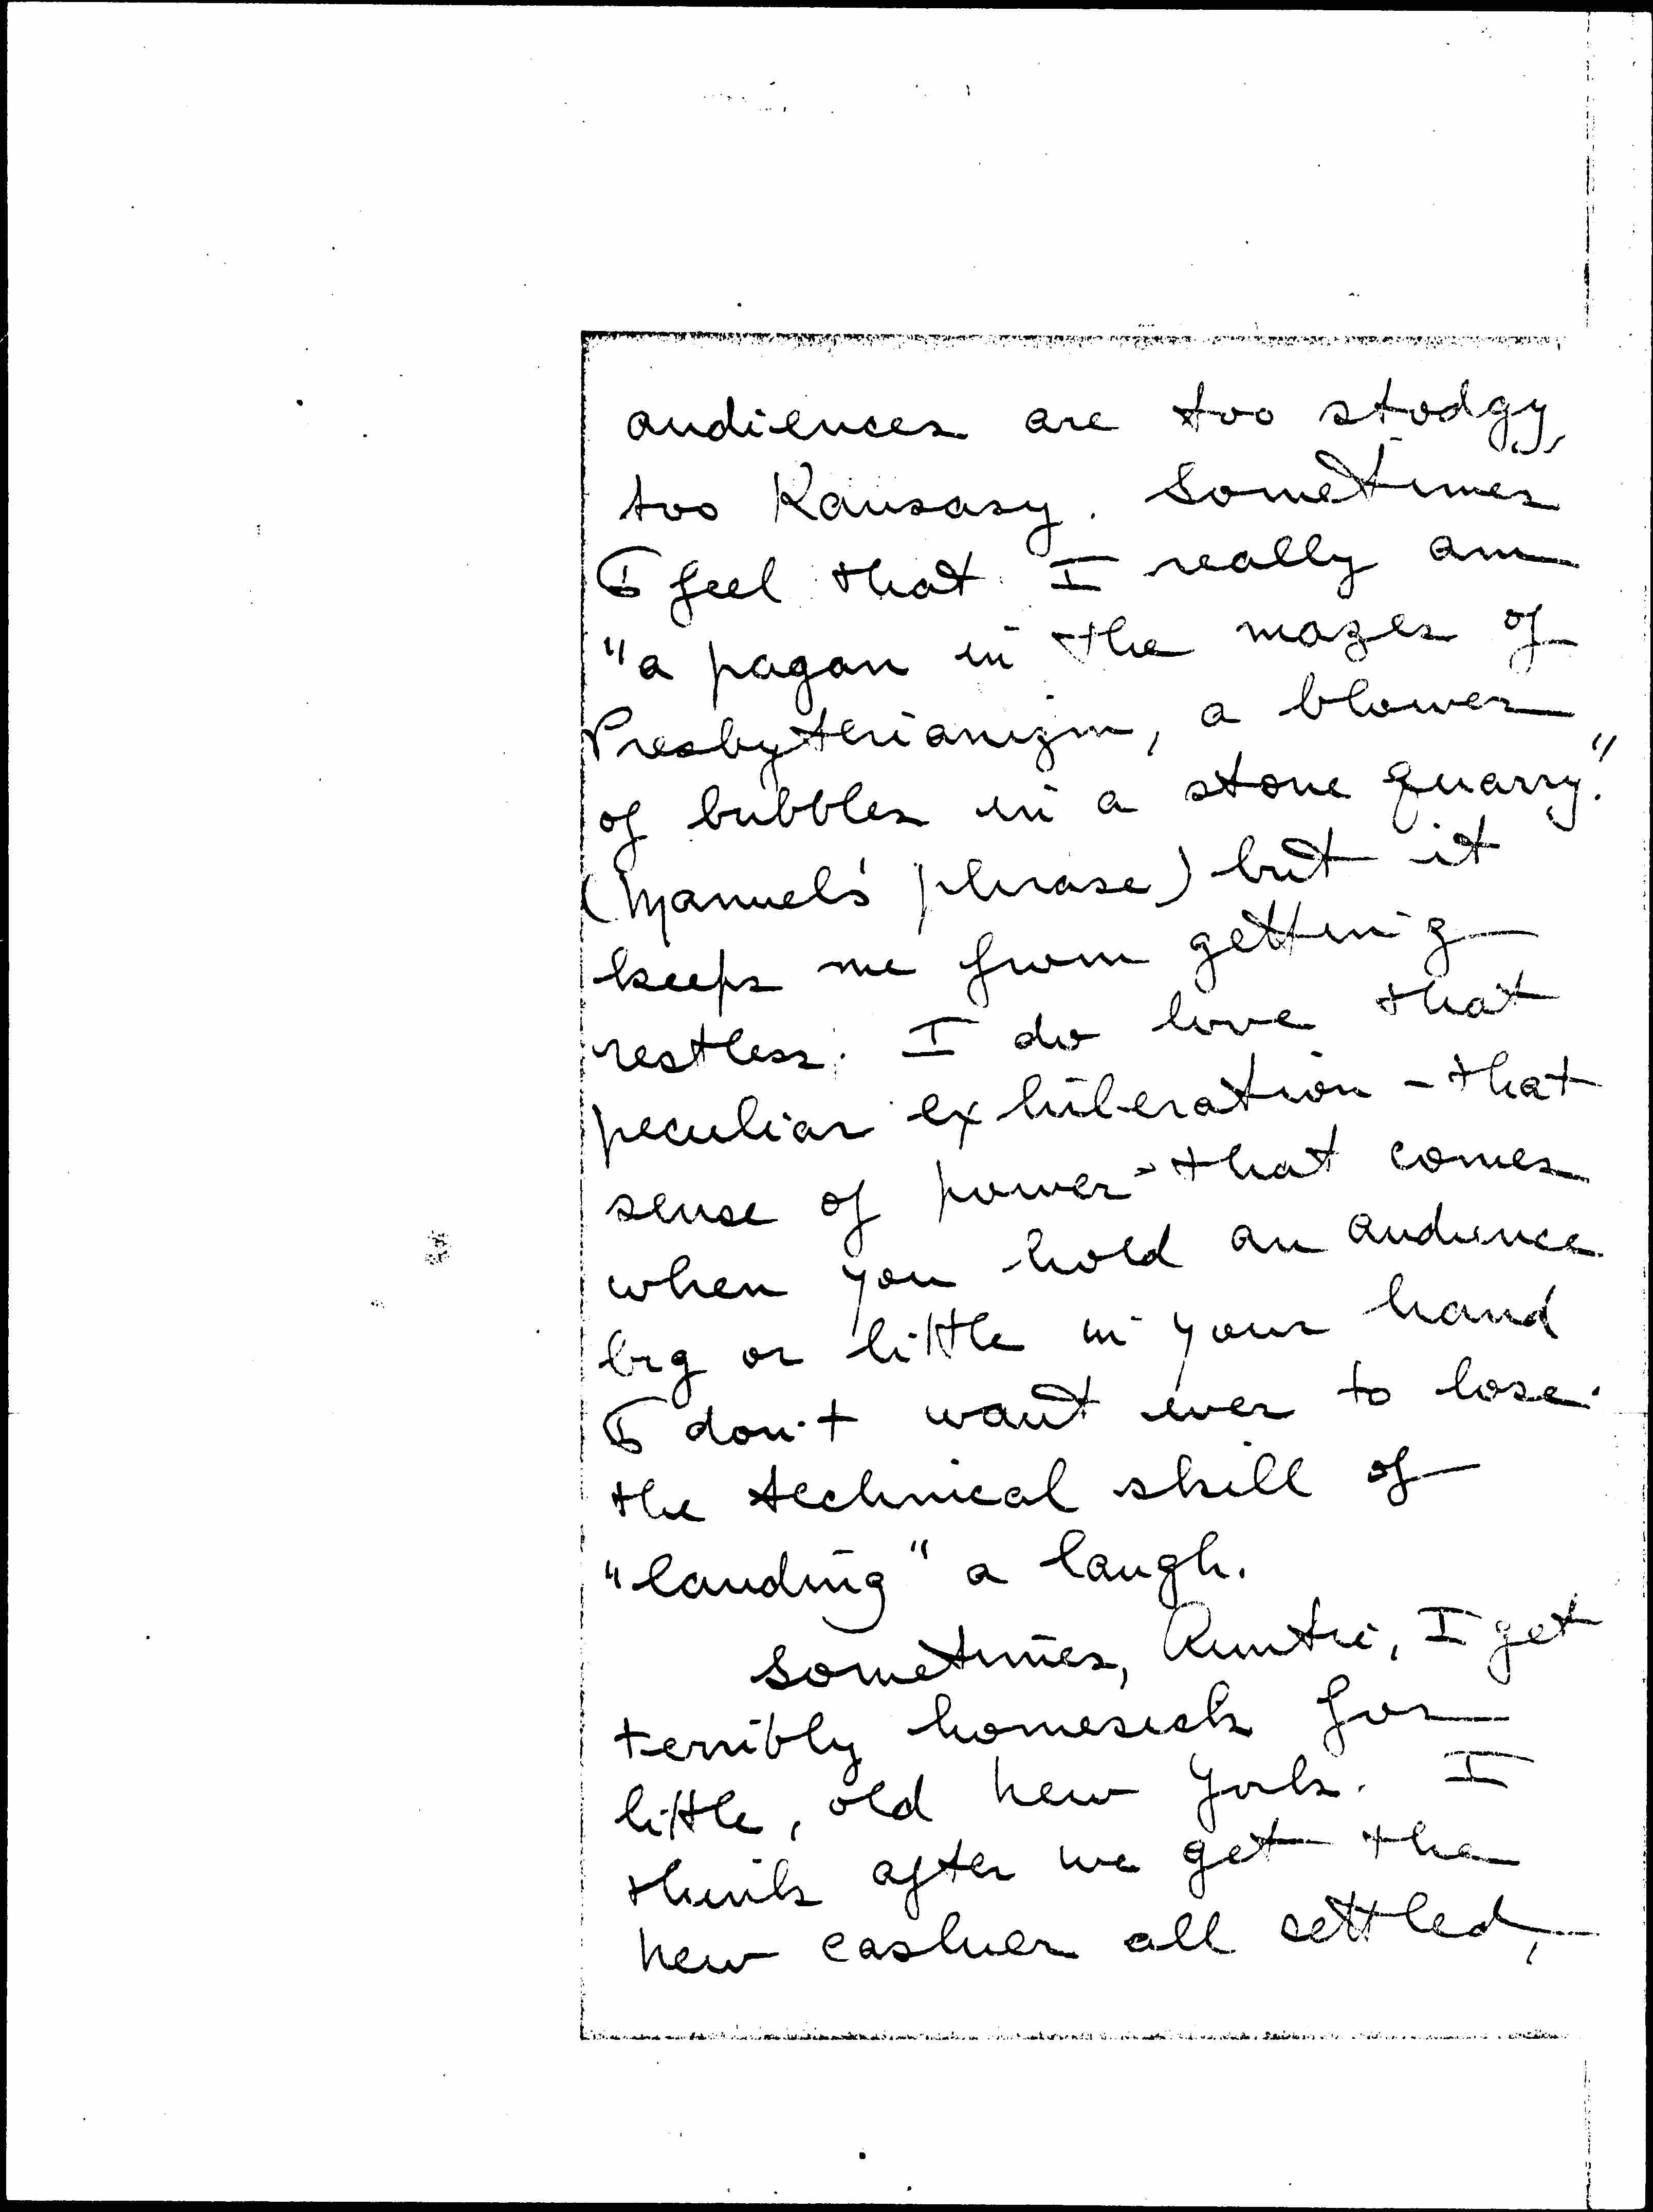 audiences are too stodgy,
too Kansasy. Sometimes
I feel that I really am
"a pagan in the mazes of
Presbyterianizm, a blower
of bubbles in a stone quarry."
(Manuel's phrase) but it
keeps me from getting
restless. I do love that
peculiar exhileration - that
sense of power - that comes
when you hold an audience
big or little in your hand
I don't want ever to lose
the technical skill of
"landing" a laugh.
Sometimes, Auntie, I get
terribly homesick for
little, old New York. I
think after we get the
new cashier all settled,